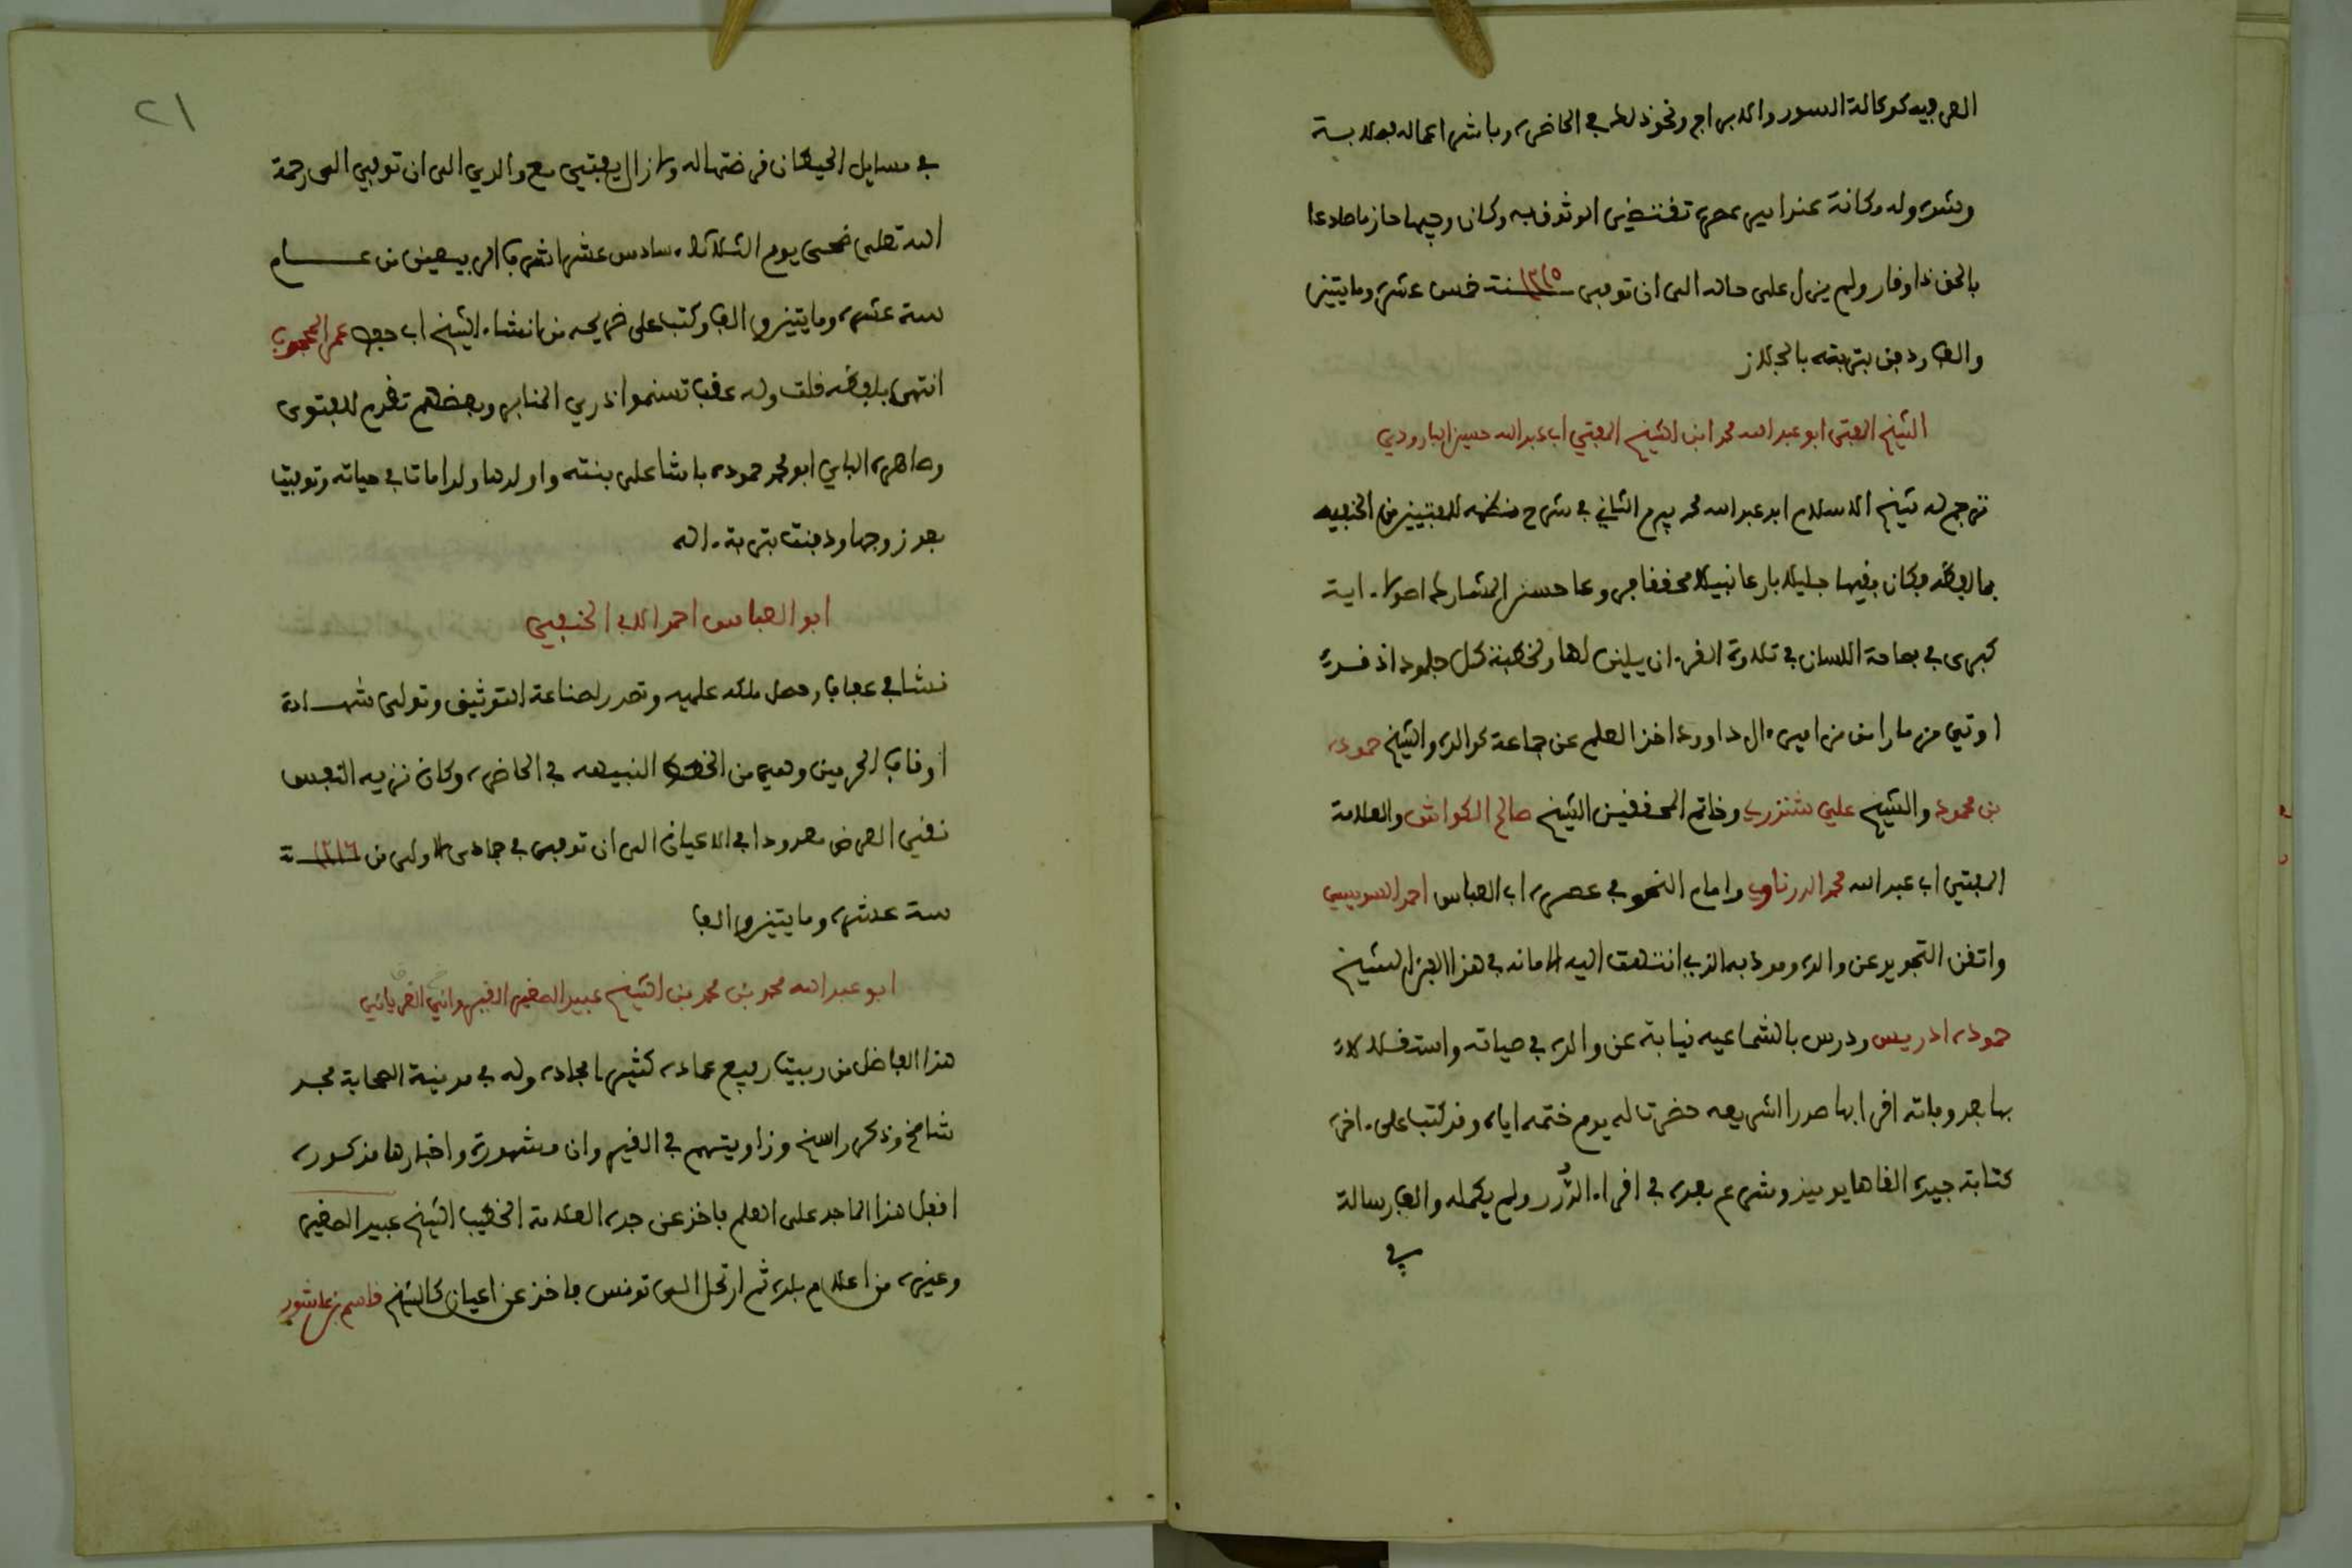 العرفيه كوكالة السور والابراج ونحو ذلك في الحاضره وباشر اعماله بعلا بسة
وشده وله مكانة عند امير عصره تقتضي الوثوق به وكان وجيها حازما صادعا
بالحق ذا وقار ولم يزل على حاله الى ان توفى سنة ١٢١٥ خمس عشره ومايتين
والف ودفن بتربته بالجلاز
الشيخ المفتى ابو عبد الله محمد ابن الشيخ المفتي اب عبد الله حسين البارودي
ترجم له شيخ الاسلام ابو عبد الله محمد بيرم الثاني في شرح منظمه للمفتيين من الحنفيه
بما لفظه فكان فقيها جليلا بارعا نبيلا محققا فروعا حسن المشاركه اصولا ءاية
كبرى في فصاحة اللسان في تلاوة القرءان يلين لها ولخطبته كل جلمود اذ قد
اوتي مزمارا من مزامير ءال داوود اخذ العلم عن جماعة كوالده والشيخ حموده
بن محمود والشيخ علي شتنزر وخاتم المحققين الشيخ صالح الكواش والعلامة
المفتي اب عبد الله محمد الدرناوي وامام النحو في عصره اب العباس احمد السويسي
واتقن التجويد عن والده ومودبه الذي انتهت اليه الامانه في هذا الفن الشيخ
حموده ادريس ودرس بالشماعيه نيابة عن والده في حياته واستقلالا
بها بعد وفاته اقرا بها صدر الشريعه حضرتا له يوم ختمه اياه وقد كتب على ءاخره
كتابة جيده القاها يوميذ وشرع بعده في اقراء الدرر ولم يكمله والف رسالة
في
٢١
في مسايل الحيطان قرضتها له ولا زال يفتي مع والدي الى ان توفي الى رحمة
الله تعلى ضحى يوم الثلاثاء سادس عشر اشرف الربيعين من عـــام
ستة عشره ومايتين والف وكتب على ضريحه من انشاء الشيخ اب حفص عمر المحجوب
انتهى بلفظه قلت وله عقب تسنموا ذرى المنابر وبعضهم تقدم للفتوى
وصاهره الباي ابو محمد حموده باشا على بنته واولدها ولدا مات في حياته وتوفيت
بعد زوجها ودفنت بتربة ءاله
ابو العباس احمد الاب الحنفي
نشا في عفاف وحصل ملكه علميه وتصدر لصناعة التوثيق وتولى شهــادة
اوقاف الحرمين وهي من الخطط النبيهه في الحاضره وكان نزيه النفس
نقي العرض معدودا في الاعيان الى ان توفى في جمادى الاولى من سنة ١٢١٦
ستة عشره ومايتين والف
ابو عبد الله محمد بن محمد بن الشيخ عبيد الصغير القيرواني الغرياني
هذا الفاضل من بيت رفيع عماده كثير امجاده وله في مدينة الصحابة مجد
شامخ وذكر راسخ وزاويتهم في القيروان مشهورة واخبارها مذكوره
اقبل هذا الماجد على العلم فاخذ عن جده العلامة الخطيب الشيخ عبيد الصغير
وغيره من اعلام بلده ثم ارتحل الى تونس فاخذ عن اعيان كالشيخ قاسم بن عاشور